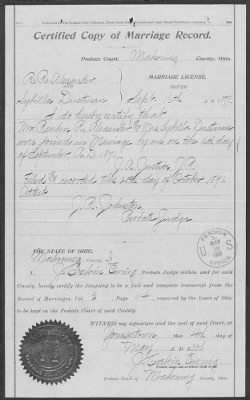 Certified Copy of Marriage Record.
Probate Court, Mahoning County, Ohio.
R. R. Alexander
AND
Sybilla Dustman
MARRIAGE LICENSE,
ISSUED
Sept 16th A. D. 189
I do hereby certify that
Mr. Reuben R. Alexander & Mrs Sybilla Dustman
were joined in Marriage by me on the 16th day
of September A.D. 189
J. A. Justice J.P.
Filed & recorded the day of October 189
Attest
J. R. Johnston
Probate Judge
THE STATE OF OHIO,
Mahoning County
I, J. Calvin Ewing Probate Judge within and for said
County, hereby certify the foregoing to be a full and complete transcript from the
Record of Marriages, Vol. Page required by the Laws of Ohio
to be kept in the Probate Court of said County.
WITNESS my signature and the seal of said Court, at
Youngstown this 4th day
of May A. D. 1901
J. Calvin Ewing
Probate Judge and ex-officio Clerk of the
Probate Court of Mahoning County, Ohio.
U. S. PENSION OFFICE
MAY